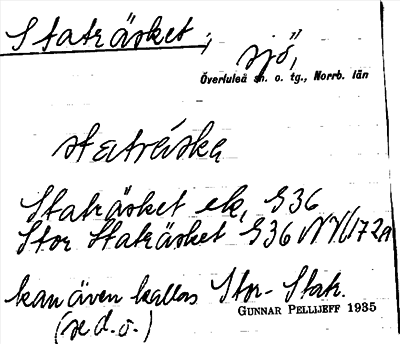 Staträsket,
sjö,
Överluleå sn. o. tg., Norrb. län
statráska
Staträsket ek, G36
Stor Staträsket G36 NV(172a
kan även kallas Stor-Stak.
GUNNAR PELLIJEFF 1935
(se d. o.)